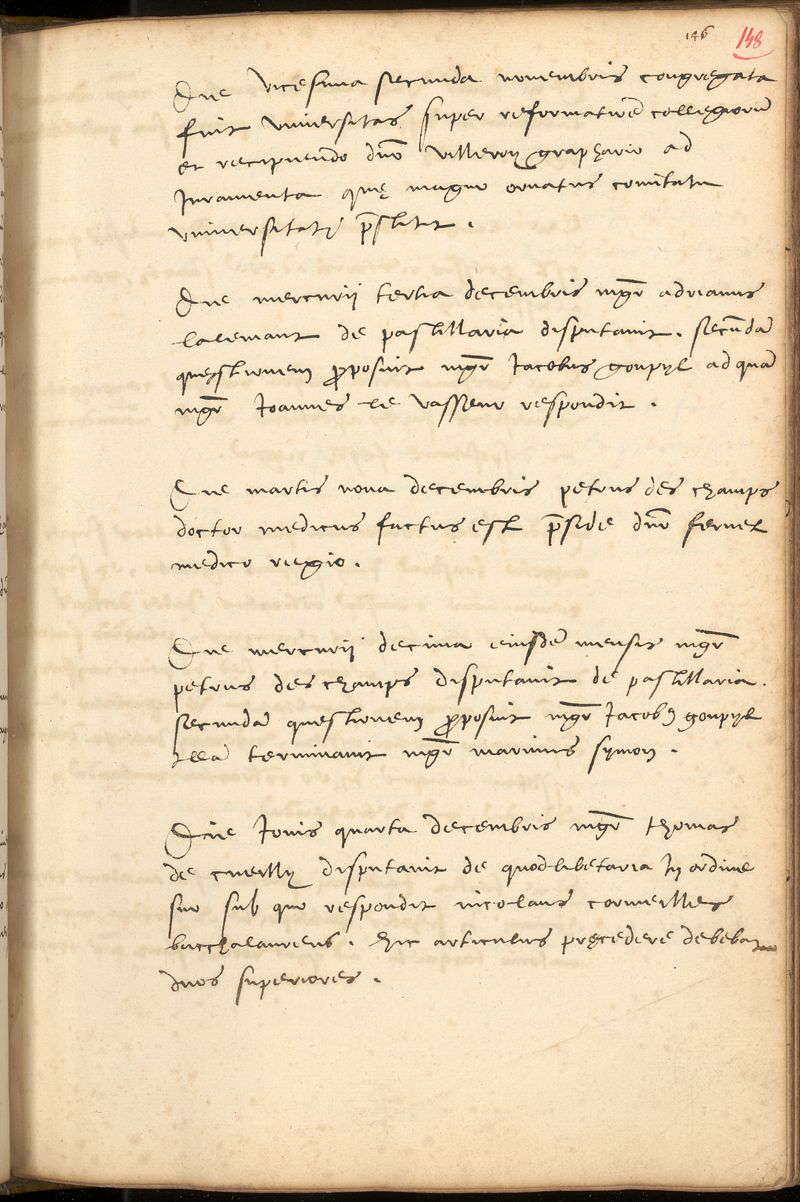 146 148
Die vicesima secunda novembris congregata
fuit universitas super reformatiōē collegiorū
et recipiendo dn̄o Villeroy graphario ad
Juramenta quę magno ornatus comitatu
universitatis p̄stitit .
Die mercurii tertia decembris mgr̄ adrianus
lalemant de pastillaria disputavit . secūdā
quęstionem proposuit mgr̄ Jacobus goupyl ad quā
mgr̄ Joannes le Vasseur respondit .
Die martis nona decembris petrus des champs
doctor medicus factus est p̄side dn̄o fernel
medico regio .
Die mercurii decima eiusdē mensis mgr̄
petrus des champs disputavit de pastillaria .
secundā questionem proposuit mgr̄ Jacobus goupyl
illā terminavit mgr̄ marinus symon .
Die Jovis quarta decembris mgr̄ thomas
de cueilly disputavit de quodlibetaria In ordine
suo sub quo respondit nicolaus cormeilles
bacchalaureus . hic articulus pręcedere debebat
duos superiores .